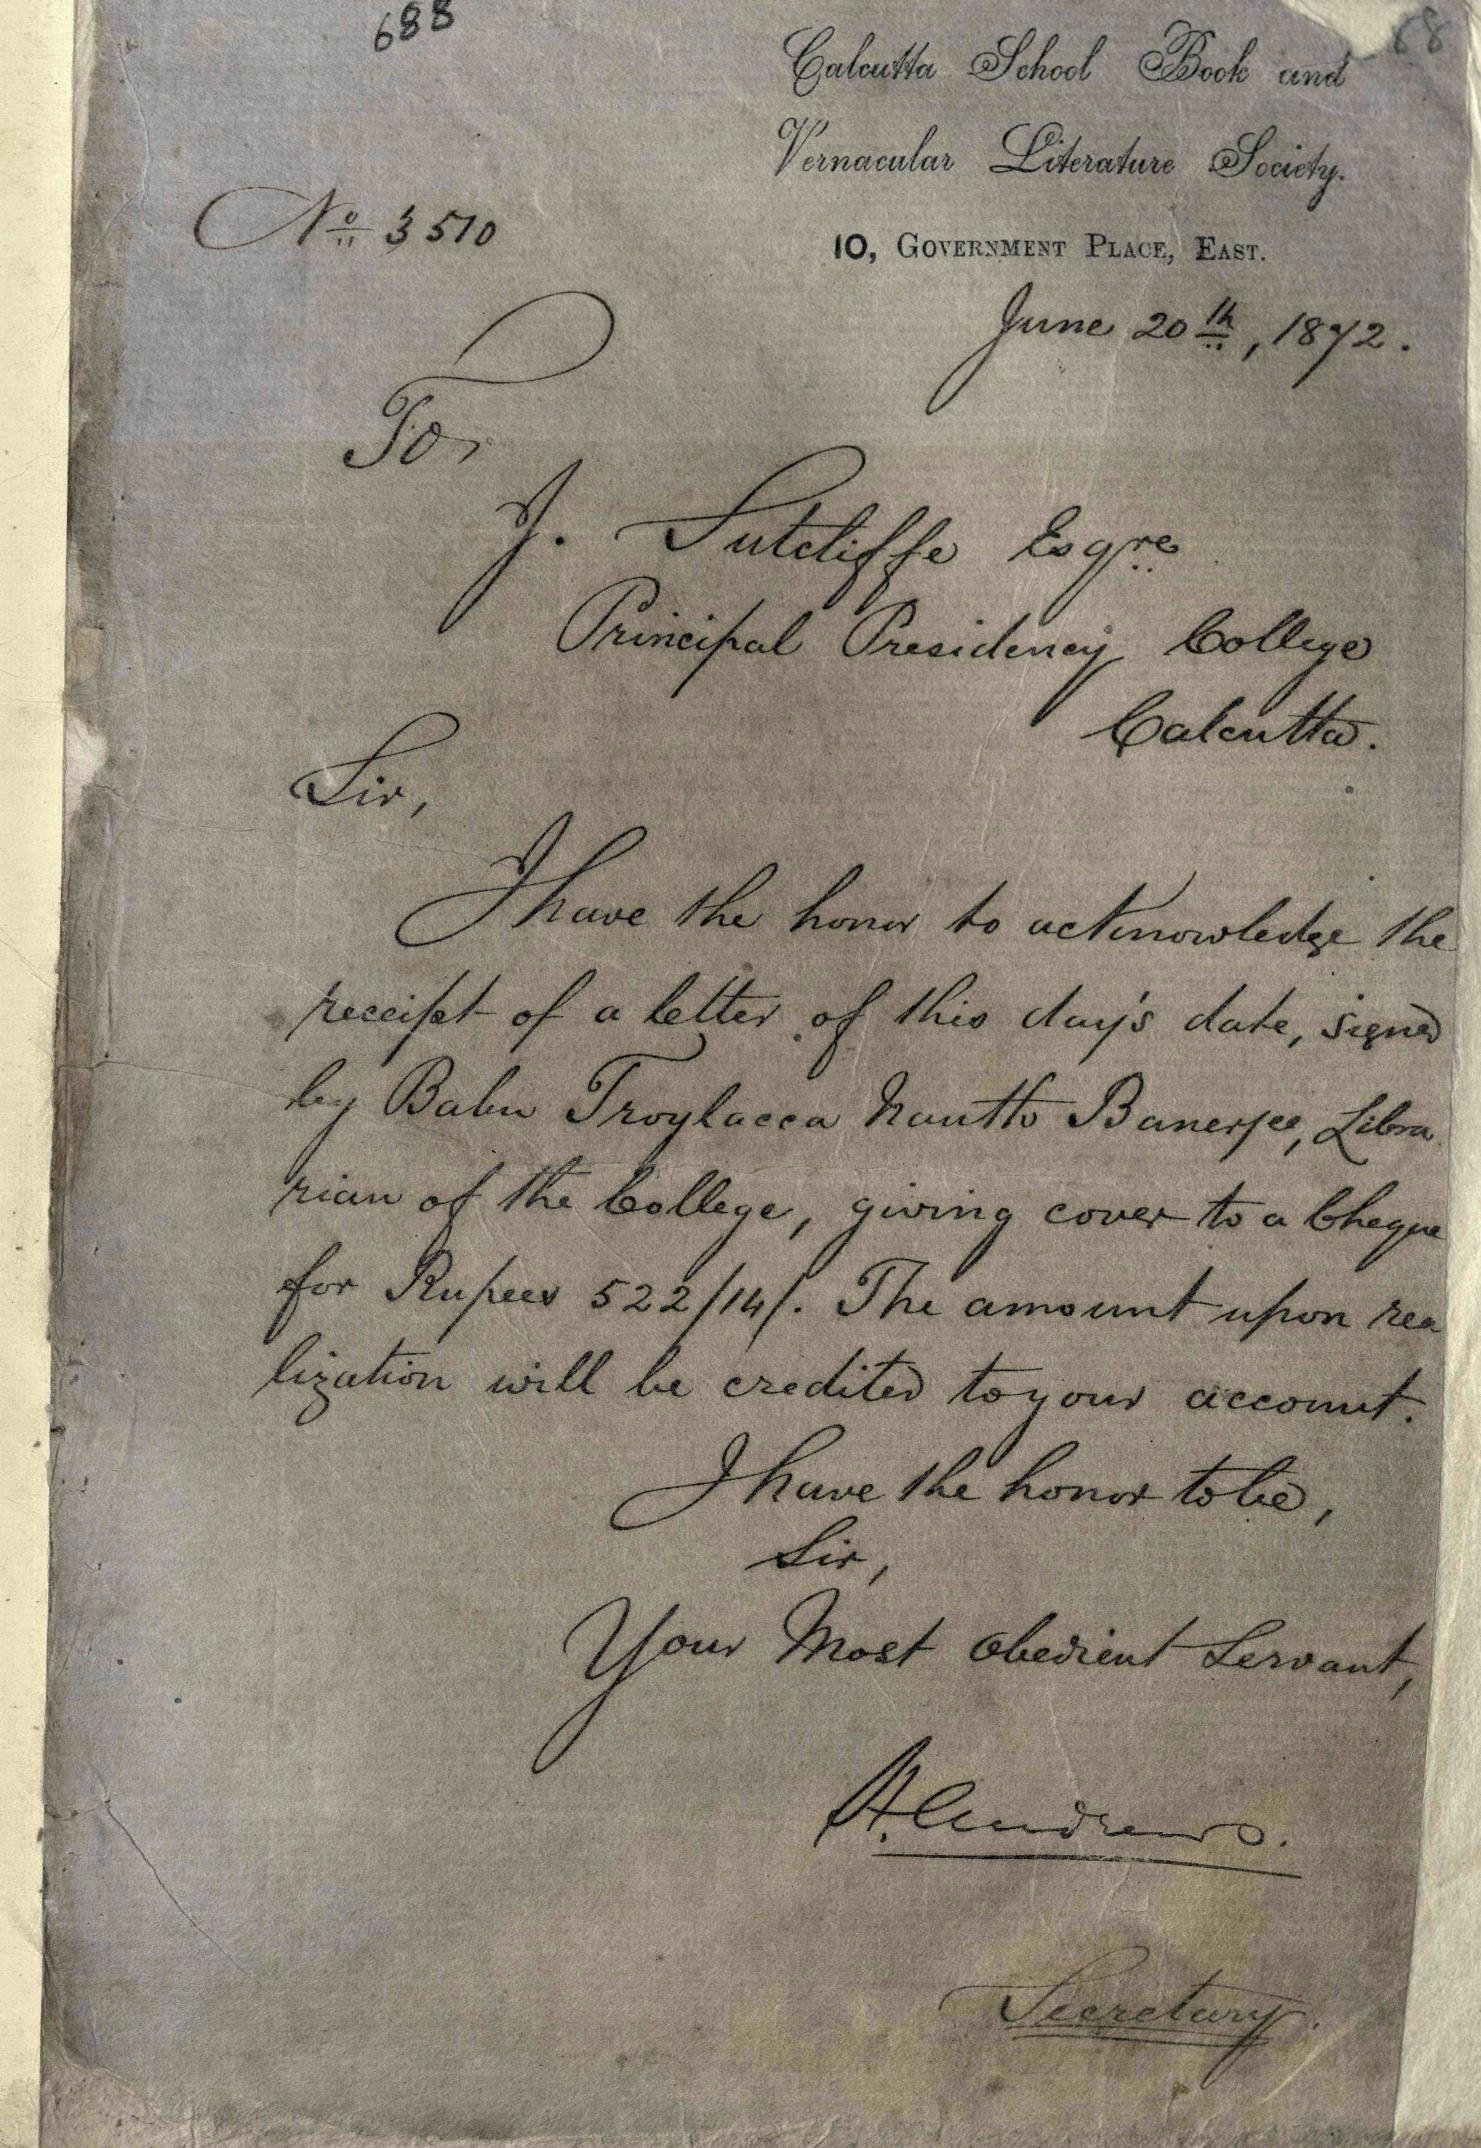 688
68
Calcutta School Book and
Vernacular Literature Society.
No 3510
10, GOVERNMENT PLACE, EAST.
June 20th, 1872.
To,
J. Sutcliffe Esqre
Principal Presidency College
Calcutta.
Sir,
I have the honor to acknowledge the
receipt of a letter of this day's date, signed
by Babu Troylacca Nautto Banerjee, Libra
rian of the College, giving cover to a Cheque
for Rupees 522/14/. The amount upon rea
lization will be credited to your account.
I have the honor to be,
Sir,
Your Most Obedient Servant,
H. Andrews.
Secretary.